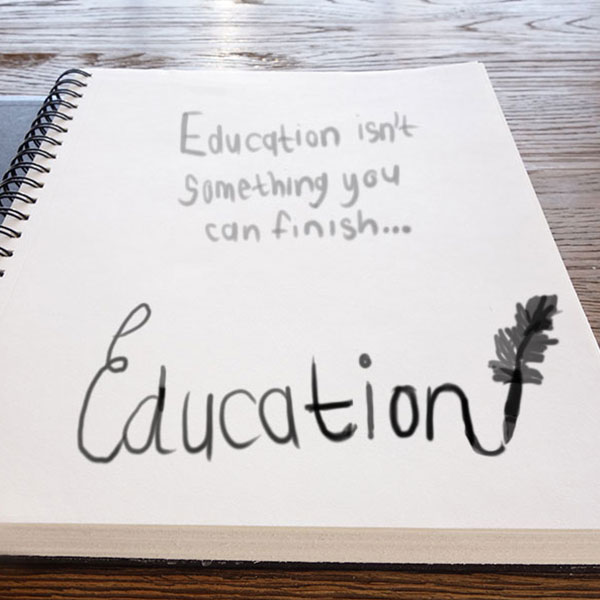 Education isn't
something you
can finish...
Education